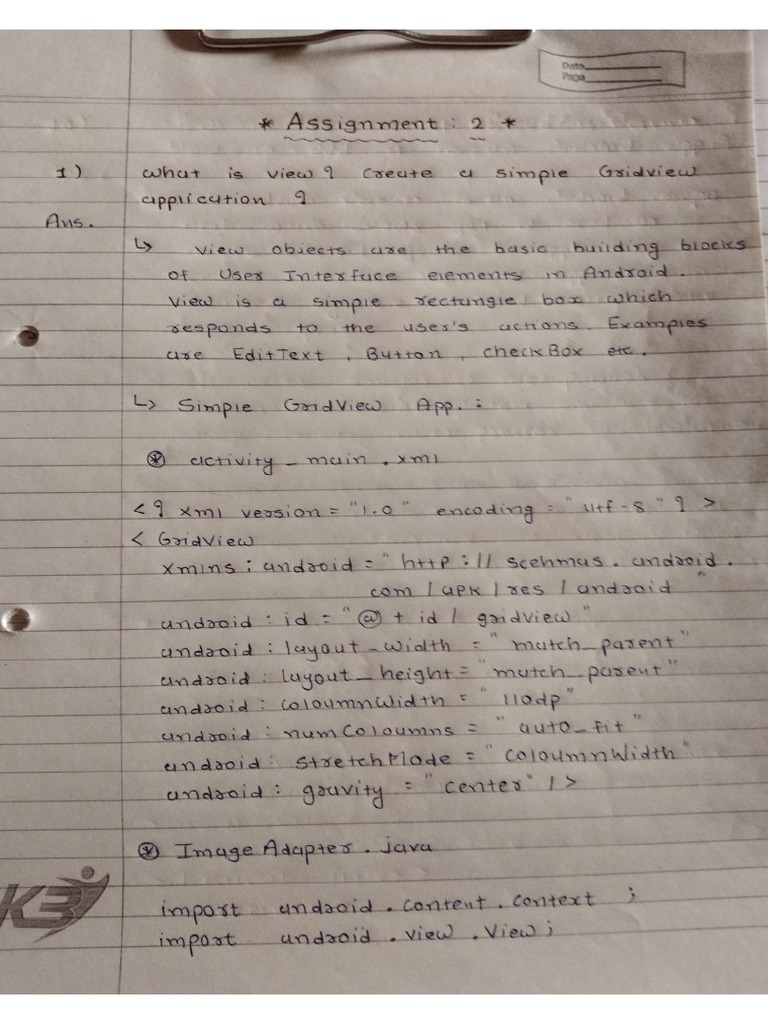 Date
Page
* Assignment : 2 *
1) What is view? Create a simple Gridview
application ?
Ans.
↳ View objects are the basic building blocks
of User Interface elements in Android.
View is a simple rectangle box which
responds to the user's actions. Examples
are EditText, Button, CheckBox etc.
↳ Simple GridView App. :
* activity_main.xml
<? xml version = "1.0" encoding = "utf-8" ? >
< GridView
xmlns : android = "http :// scehmas . android .
com / apk / res / android "
android : id = "@ + id / gridview"
android : layout_width = "match_parent"
android : layout_height = "match_parent"
android : coloumnWidth = "110dp"
android : numColoumns = "auto_fit"
android : stretchMode = "coloumnWidth"
android : gravity = "center" / >
* Image Adapter . java
import android . content . context ;
import android . view . View ;
K3